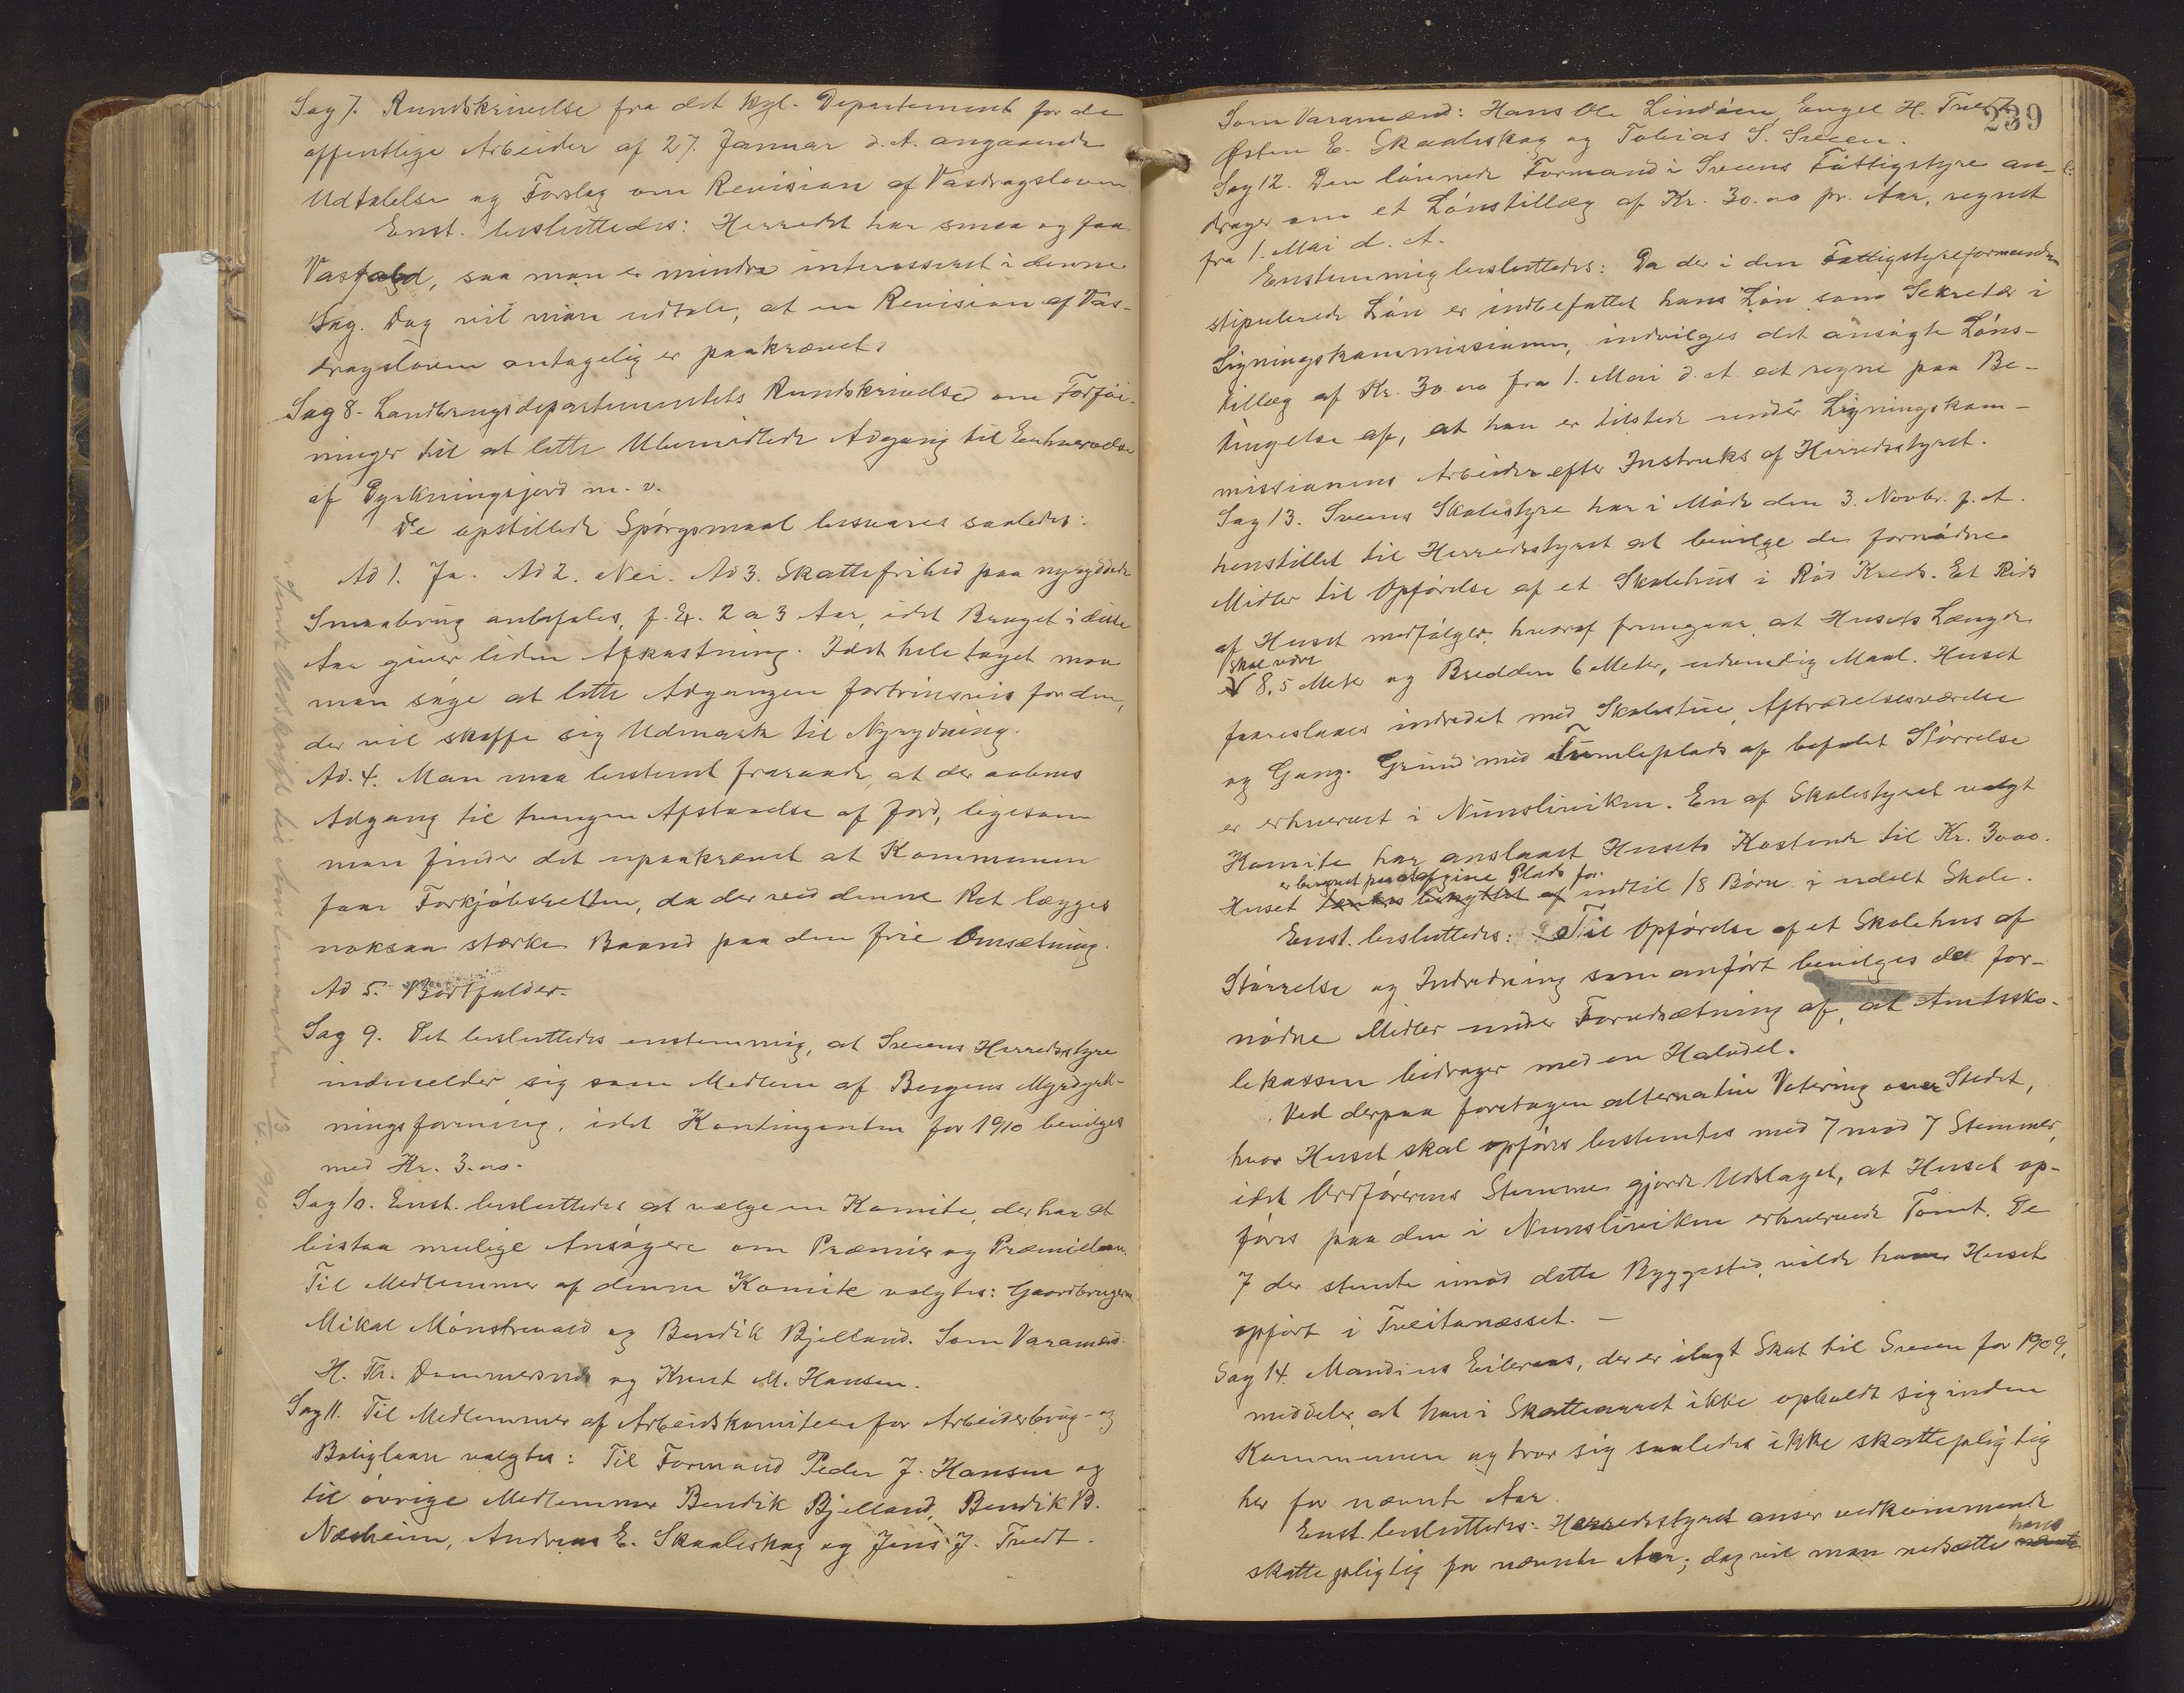 Sag 7. Rundskrivelse fra det kgl. Departement for de
offentlige Arbeider af 27. Januar d. A. angaaende
Udtalelse og Forslag om Revision af Vasdragsloven.
Enst. besluttedes: Herredet har smaa og faa
Vasfald, saa man er mindre interesseret i denne
Sag. Dog vil man udtale, at en Revision af Vas-
dragsloven antagelig er paakrævet.
Sag 8. Landbrugsdepartementets Rundskrivelse om Forføi-
ninger til at lette Ubemidlede Adgang til Erhvervelse
af Dyrkningsjord m. v.
De opstillede Spørgsmaal besvares saaledes:
Ad 1. Ja. Ad 2. Nei. Ad 3. Skattefrihed paa nyryddede
Smaabrug anbefales, f. Ex. 2 a 3 Aar, idet Bruget i disse
Aar giver liden Afkastning. I det hele taget maa
man søge at lette Adgangen fortrinsvis for dem,
der vil skaffe sig Udmark til Nyrydning.
Ad. 4. Man maa bestemt fraraade, at der aabnes
Adgang til tvungen Afstaaelse af Jord, ligesom
man finder det upaakrævet at Kommunen
faar Forkjøbsretten, da der ved denne Ret lægges
noksaa stærke Baand paa den frie Omsætning.
Ad 5. Bortfalder.
Sag 9. Det besluttedes enstemmig, at Sveens Herredsstyre
indmelder sig som Medlem af Bergens Myrdyrk-
ningsforening, idet Kontingenten for 1910 bevilges
med Kr. 3.00.
Sag 10. Enst. besluttedes at vælge en Komite, der har at
bistaa mulige Ansøgere om Præmier og Præmielaan.
Til Medlemmer af denne Komite valgtes: Gaardbrugerne
Mikal Mønstrevold og Bendik Bjelland. Som Varamænd:
H. Th. Dommersnes og Knut M. Hansen.
Sag 11. Til Medlemmer af Arbeidskomiteen for Arbeiderbrug- og
Boliglaan valgtes: Til Formand Peder J. Hansen og
til øvrige Medlemmer Bendik Bjelland, Bendik B.
Næsheim, Andreas E. Skaaleskog og Jens J. Tvedt.
Sendt Udskrift til Amtmanden 13/4 1910.
239
Som Varamænd: Hans Ole Lindøen, Engel H. Tvedt,
Østen E. Skaaleskog og Tobias S. Sveen.
Sag 12. Den lønnede Formand i Sveens Fattigstyre an-
drager om et Lønstillæg af Kr. 30.00 pr. Aar, regnet
fra 1. Mai d. A.
Enstemmig besluttedes: Da der i den Fattigstyreformanden
stipulerede Løn er indbefattet hans Løn som Sekretær i
Ligningskommissionen, indvilges det ansøgte Løns-
tillæg af Kr. 30.00 fra 1. Mai d. A. at regne paa Be-
tingelse af, at han er tilstede under Ligningskom-
missionens Arbeider efter Instruks af Herredsstyret.
Sag 13. Sveens Skolestyre har i Møde den 3. Novbr. f. A.
henstillet til Herredsstyret at bevilge de fornødne
Midler til Opførelse af et Skolehus i Rød Kreds. Et Rids
af Huset medfølger, hvoraf fremgaar, at Husets Længde
skal være
8,5 Meter og Bredden 6 Meter, udvendig Maal. Huset
foreslaaes indredet med Skolestue, Aftrædelsesværelse
og Gang. Grund med Tumleplads af befalet Størrelse
er erhvervet i Nunsliviken. En af Skolestyret valgt
Komite har anslaaet Husets Kostende til Kr. 3000.
er beregnet paa at give Plads for
Huset tænkes benyttet af indtil 18 Børn i udelt Skole.
Enst. besluttedes: Til Opførelse af et Skolehus af
Størrelse og Indredning som anført bevilges de for-
nødne Midler under Forudsætning af, at Amtssko-
lekassen bidrager med en Halvdel.
Ved derpaa foretagen alternativ Votering over Stedet,
hvor Huset skal opføres bestemtes med 7 mod 7 Stemmer,
idet Ordførerens Stemme gjorde Udslaget, at Huset op-
føres paa den i Nunsliviken erhvervede Tomt. De
7 der stemte imod dette Byggested, vilde have Huset
opført i Tveitanæsset. —
Sag 14. Mandius Eileraas, der er ilagt Skat til Sveen for 1909,
meddeler at han i Skatteaaret ikke opholdt sig inden
Kommunen og tror sig saaledes ikke skattepligtig
her for nævnte Aar.
Enst. besluttedes: Herredsstyret anser vedkommende
hans
skattepligtig for nævnte Aar; dog vil man nedsætte nævnte